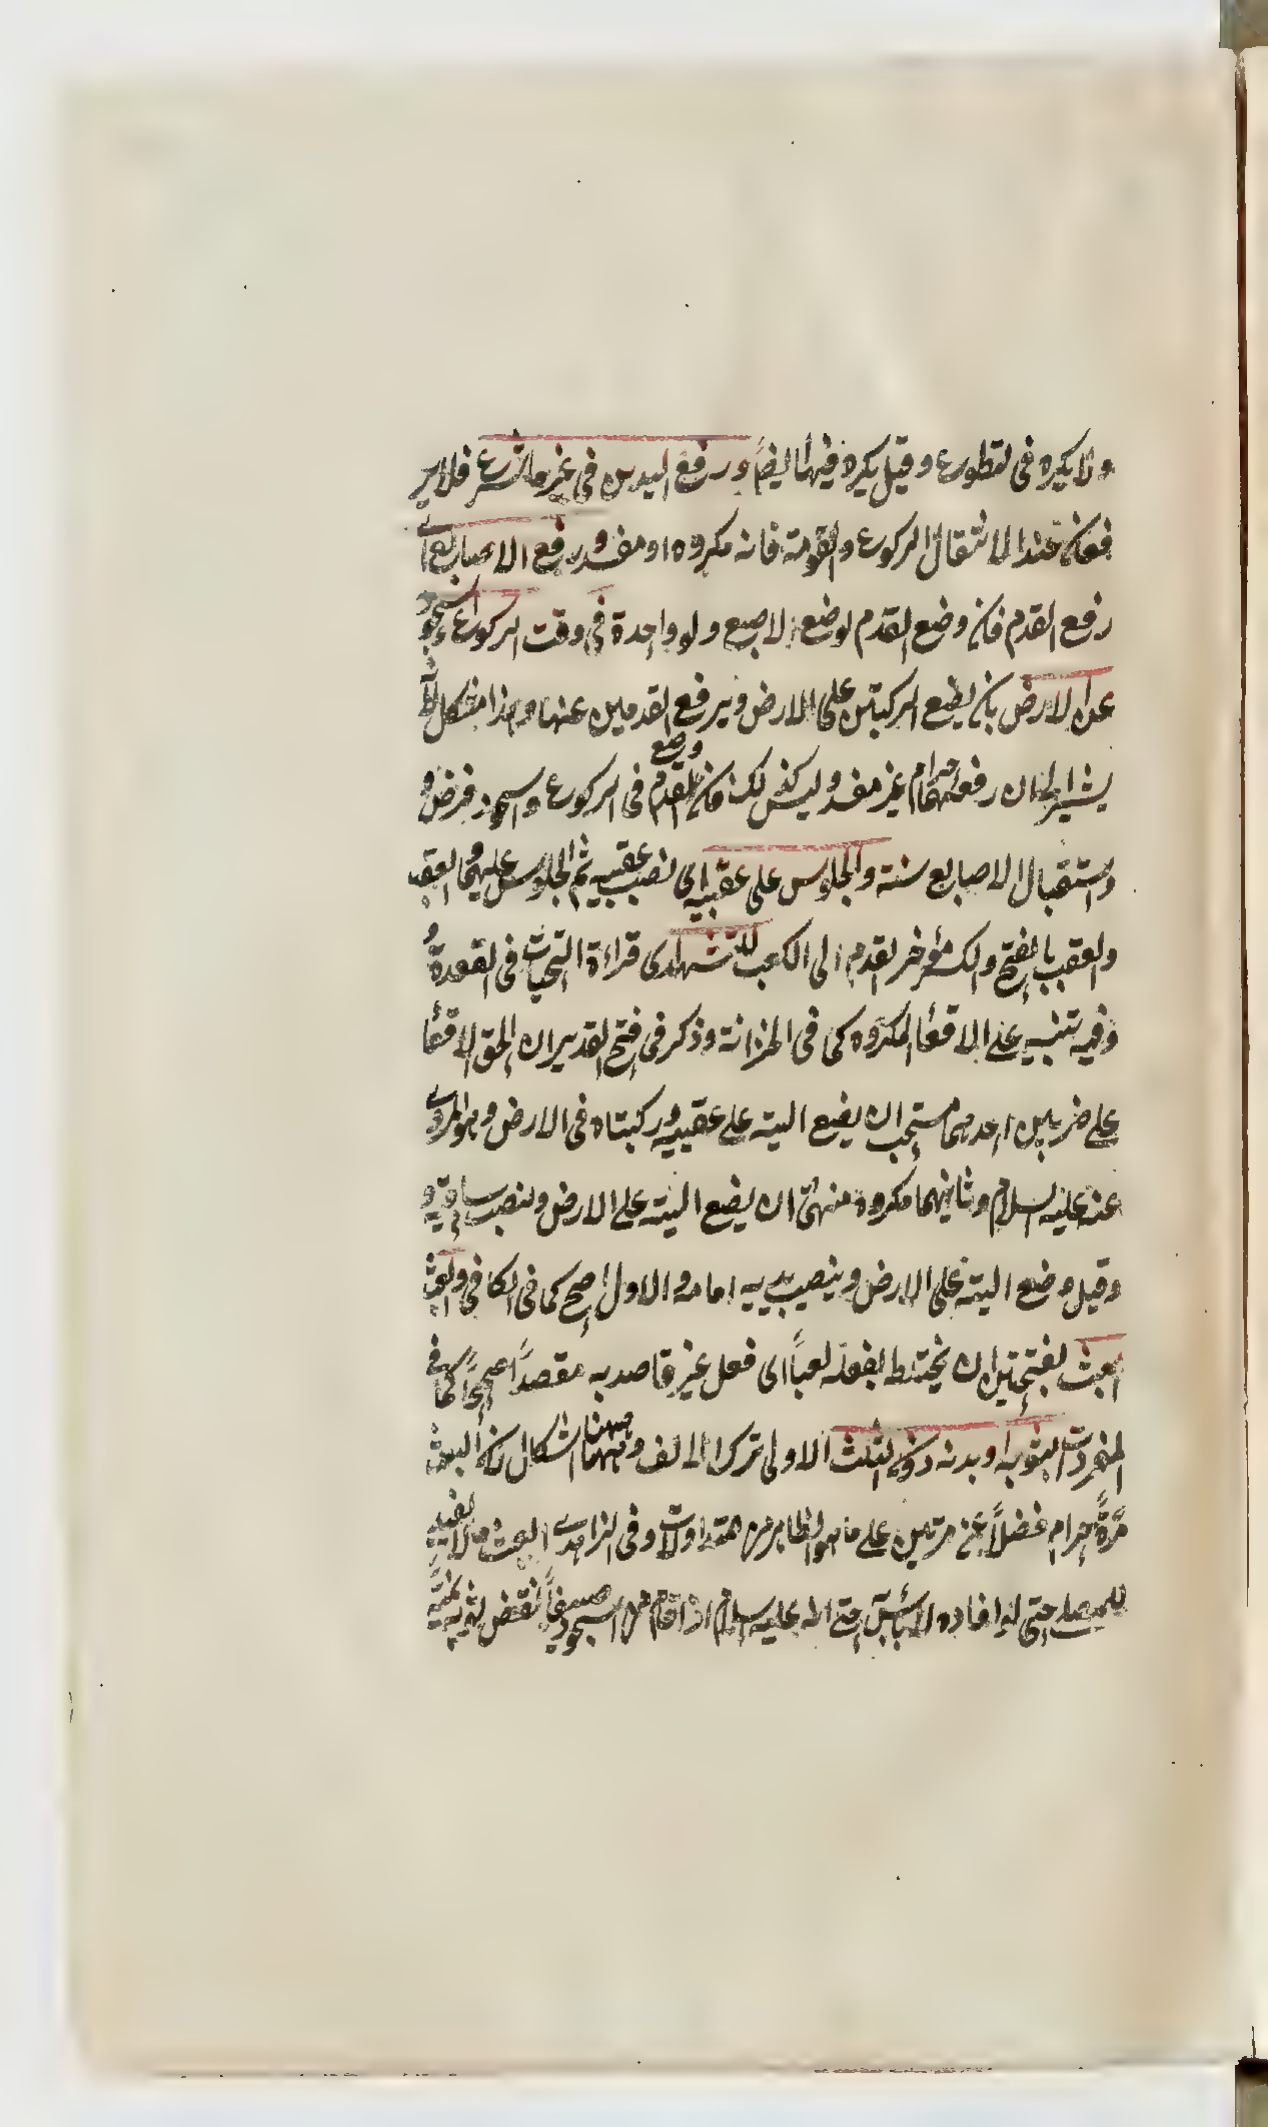 ولا يكره فى التطوع وقيل يكره فيهما ايضاً ورفع اليدين فى غير ما شرع فلا ير
فعان عند الانتقال الركوع والقومة فانه مكروه او مفسد ورفع الاصابع اى
رفع القدم فان وضع القدم لوضع الاصبع ولو واحدة فى وقت الركوع او السجود
عن الارض بان يضع الركبتين على الارض ويرفع القدمين عنها وهذا مشكل لانه
يشير الى ان رفعهما حرام غير مفسد وليس كذلك فان وضع القدم فى الركوع والسجود فرض و
واستقبال الاصابع سنة والجلوس على عقبيه اى نصب عقبيه ثم الجلوس عليهما والعقب
والعقب بالفتح والكسر مؤخر القدم الى الكعب للتشهد اى قراءة التحيات فى القعدة و
وفيه تنبيه على الاقعاء المكروه كما فى الخزانة وذكر فى فتح القدير ان الحق الاقعا
على ضربين احدهما مستحب ان يضع اليته على عقبيه وركبتاه فى الارض وهو المروى
عنه عليه السلام وثانيهما مكروه منهى ان يضع اليته على الارض وينصب ساقيه و
وقيل وضع اليته على الارض وينصب يديه امامه والاول اصح كما فى الكافى والعبث
العبث بفتحتين ان يختلط بفعله لعباً اى فعل غير قاصد به مقصداً صحيحاً كما فى
المفردات بثوبه او بدنه دون الثلث الاولى ترك الالف وههنا اشكال لان العبث
مرّةً حرام فضلاً عن مرتين على ما هو الظاهر من المتداولات وفى الزاهدى العبث ما لا يفيد
للمصلى حتى لو افاده لا باس به حتى انه عليه السلام اذا قام من السجود صيفاً نفض ثوبه يمنة